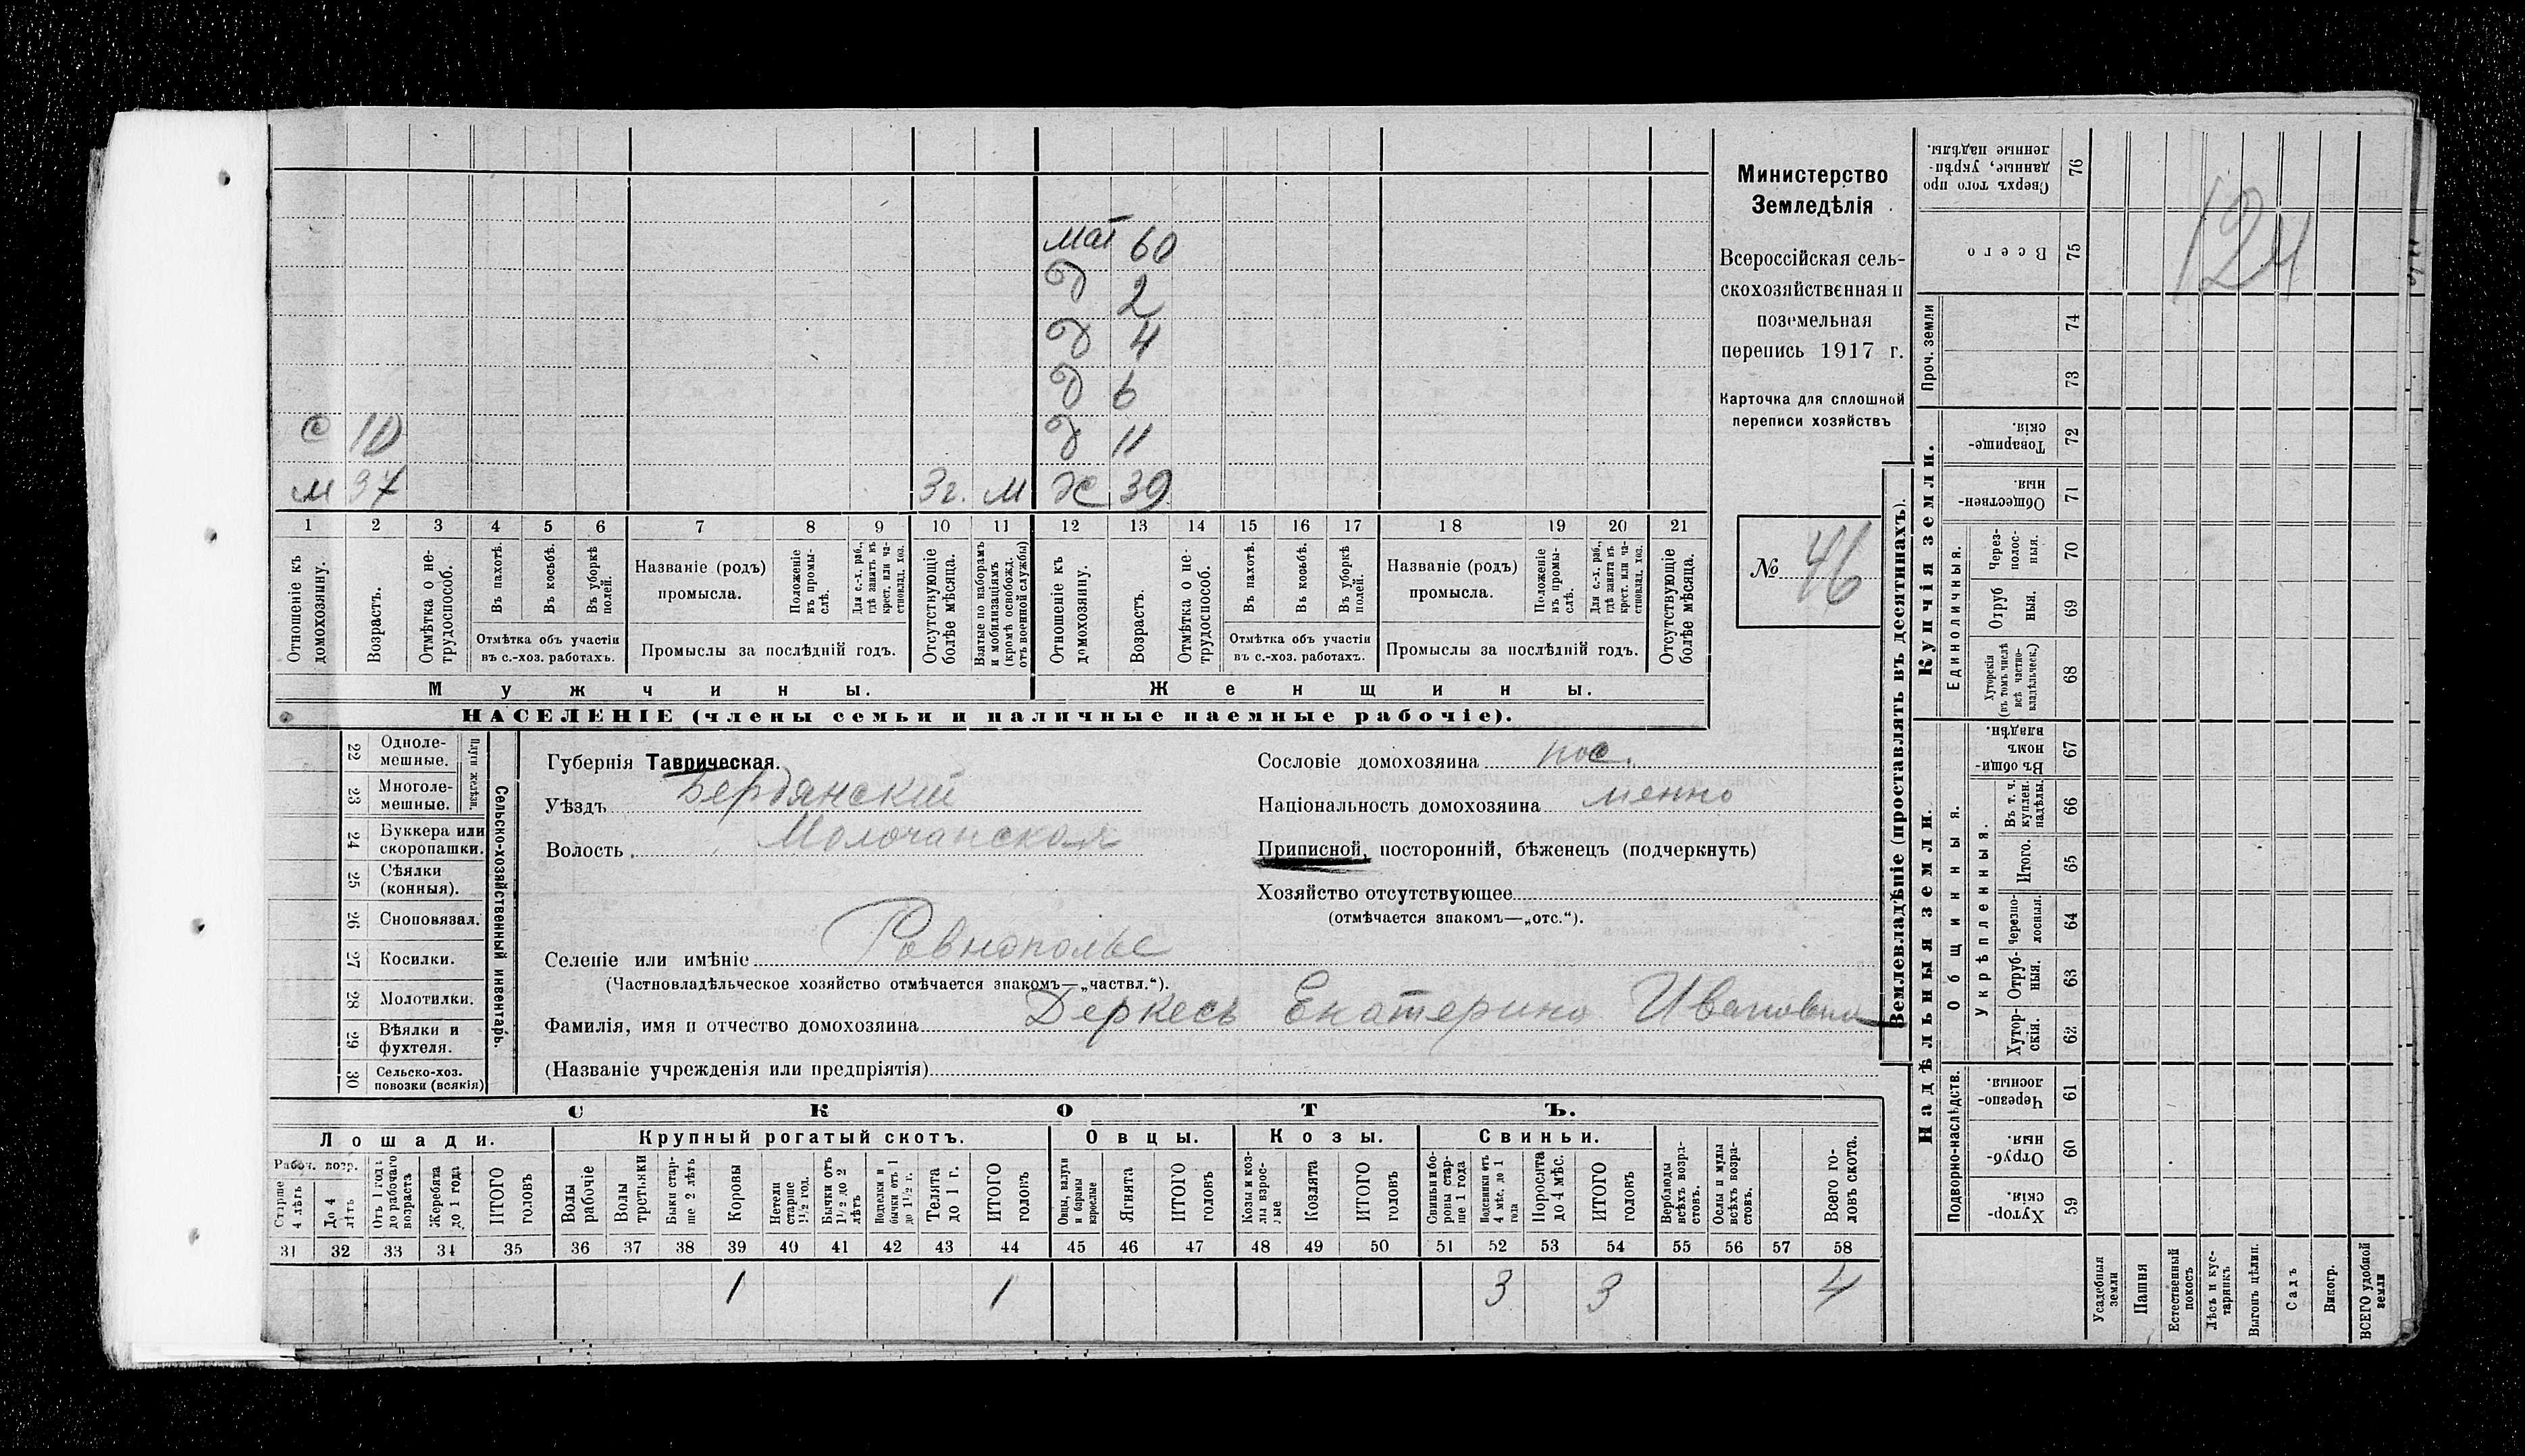 мат 60
д 2
д 4
д 6
с 10 д 11
м 37 3г. м ж 39
1 2 3 4 5 6 7 8 9 10 11 12 13 14 15 16 17 18 19 20 21
Отношеніе къ домохозяину.
Возрастъ.
Отмѣтка о не-трудоспособ.
Въ пахотѣ.
Въ косьбѣ.
Въ уборкѣ полей.
Отмѣтка объ участіи
въ с.-хоз. работахъ.
Названіе (родъ)
промысла.
Положеніе въ промы-слѣ.
Для с.-х. раб., гдѣ занятъ въ крест. или ча-стновлад. хоз.
Промыслы за послѣдній годъ.
Отсутствующіе болѣе мѣсяца.
Взятые по наборамъ и мобилизаціямъ (кромѣ освобожд. отъ военной службы)
Отношеніе къ домохозяину.
Возрастъ.
Отмѣтка о не-трудоспособ.
Въ пахотѣ.
Въ косьбѣ.
Въ уборкѣ полей.
Отмѣтка объ участіи
въ с.-хоз. работахъ.
Названіе (родъ)
промысла.
Положеніе въ промы-слѣ.
Для с.-х. раб., гдѣ занята въ крест. или ча-стновлад. хоз.
Промыслы за послѣдній годъ.
Отсутствующіе болѣе мѣсяца.
Мужчины. Женщины.
НАСЕЛЕНІЕ (члены семьи и наличные наемные рабочіе).
Министерство
Земледѣлія
Всероссійская сель-
скохозяйственная и
поземельная
перепись 1917 г.
Карточка для сплошной
переписи хозяйствъ
№ 46
22 Одноле-мешные.
23 Многоле-мешные.
Плуги желѣзн.
24 Буккера или скоропашки.
25 Сѣялки (конныя).
26 Сноповязал.
27 Косилки.
28 Молотилки.
29 Вѣялки и фухтеля.
30 Сельско-хоз. повозки (всякія)
Сельско-хозяйственный инвентарь.
Губернія Таврическая.
Уѣздъ Бердянскій
Волость Молочанская
Селеніе или имѣніе Ровнополье
(Частновладѣльческое хозяйство отмѣчается знакомъ—„частвл.“).
Фамилія, имя и отчество домохозяина Деркесъ Екатерина Ивановна
(Названіе учрежденія или предпріятія)
Сословіе домохозяина пос.
Національность домохозяина менно
Приписной, посторонній, бѣженецъ (подчеркнуть)
Хозяйство отсутствующее
(отмѣчается знакомъ—„отс.“).
СКОТЪ.
Лошади. Крупный рогатый скотъ. Овцы. Козы. Свиньи.
Рабоч. возр.
Старше 4 лѣтъ
До 4 лѣтъ
Отъ 1 года до рабочаго возраста
Жеребята до 1 года
ИТОГО головъ
Волы рабочіе
Волы третьяки
Быки стар-ше 2 лѣтъ
Коровы
Нетели старше 1 1/2 год.
Бычки отъ 1 1/2 до 2 лѣтъ
Подтелки и бычки отъ 1 до 1 1/2 г.
Телята до 1 г.
ИТОГО головъ
Овцы, валухи и бараны взрослые
Ягнята
ИТОГО головъ
Козы и коз-лы взрос-лые
Козлята
ИТОГО головъ
Свиньи и бо-ровы стар-ше 1 года
Подсвинки отъ 4 мѣс. до 1 года
Поросята до 4 мѣс.
ИТОГО головъ
Верблюды всѣхъ возра-стовъ.
Ослы и мулы всѣхъ возра-стовъ.
Всего го-ловъ скота.
31 32 33 34 35 36 37 38 39 40 41 42 43 44 45 46 47 48 49 50 51 52 53 54 55 56 57 58
1 1 3 3 4
Землевладѣніе (проставлять въ десятинахъ).
Надѣльныя земли. Купчія земли.
Проч. земли
Подворно-наслѣдств.
Общинныя.
Укрѣпленныя.
Единоличныя.
Сверхъ того про данные, укрѣп-ленные надѣлы. 76
Всего 75
74
73
Товарище-скія. 72
Обществен-ныя. 71
Через-полос-ныя. 70
Отруб ныя. 69
Хуторскія (въ томъ числѣ всѣ частно-владѣльческ.) 68
Въ общи-номъ владѣн. 67
Въ т. ч. куплен. надѣлы. 66
Итого. 65
Черезпо-лосныя. 64
Отруб-ныя. 63
Хутор-скія. 62
Черезпо-лосныя. 61
Отруб-ныя. 60
Хутор-скія. 59
Усадебныя земли
Пашня
Естественный покосъ
Лѣсъ и кус-тарникъ
Выгонъ цѣлин.
Садъ
Виногр.
ВСЕГО удобной земли
124